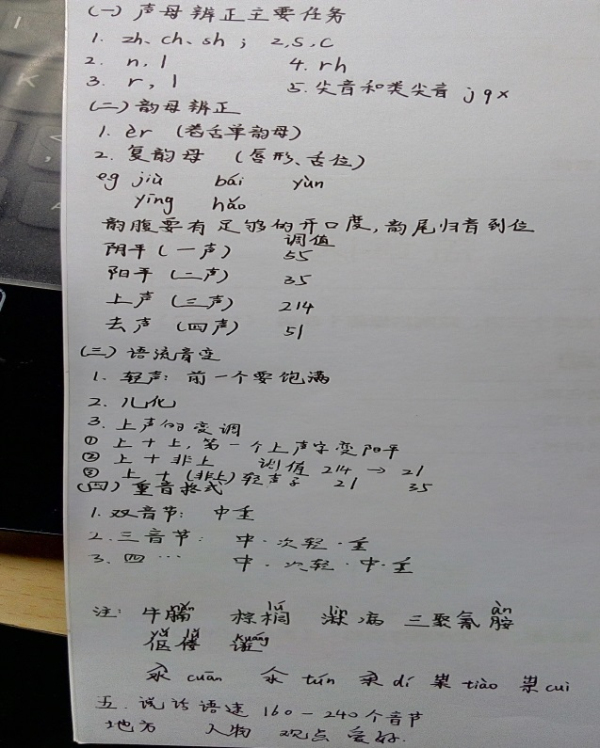 (一) 声母辨正主要任务
1. zh、ch、sh ; z,s,c
2. n, l 4. rh
3. r, l 5. 尖音和类尖音 j q x
(二) 韵母辨正
1. èr (卷舌单韵母)
2. 复韵母 (唇形、舌位)
eg jiù bái yùn
yīng hǎo
韵腹要有足够的开口度,韵尾归音到位
调值
阴平 (一声) 55
阳平 (二声) 35
上声 (三声) 214
去声 (四声) 51
(三) 语流音变
1. 轻声: 前一个要饱满
2. 儿化
3. 上声的变调
① 上+上,第一个上声字变阳平
② 上+非上 调值 214 → 21
③ 上+(非上)轻声字 21 35
(四) 重音格式
1. 双音节: 中重
2. 三音节: 中·次轻·重
3. 四 … 中·次轻·中·重
注: 牛腩 棕榈 淋病 三聚氰胺 àn
伛偻 诓 kuāng
汆 cuān 氽 tǔn 籴 dí 粜 tiào cuì
五. 说话语速 160-240个音节
地方 人物 观点 爱好.